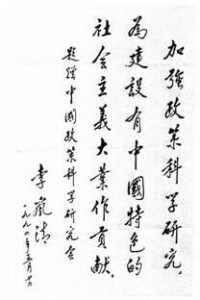 加强政策科学研究，
為建設有中國特色的
社会主義大業作貢献。
题贈中國政策科学研究会
李嵐清